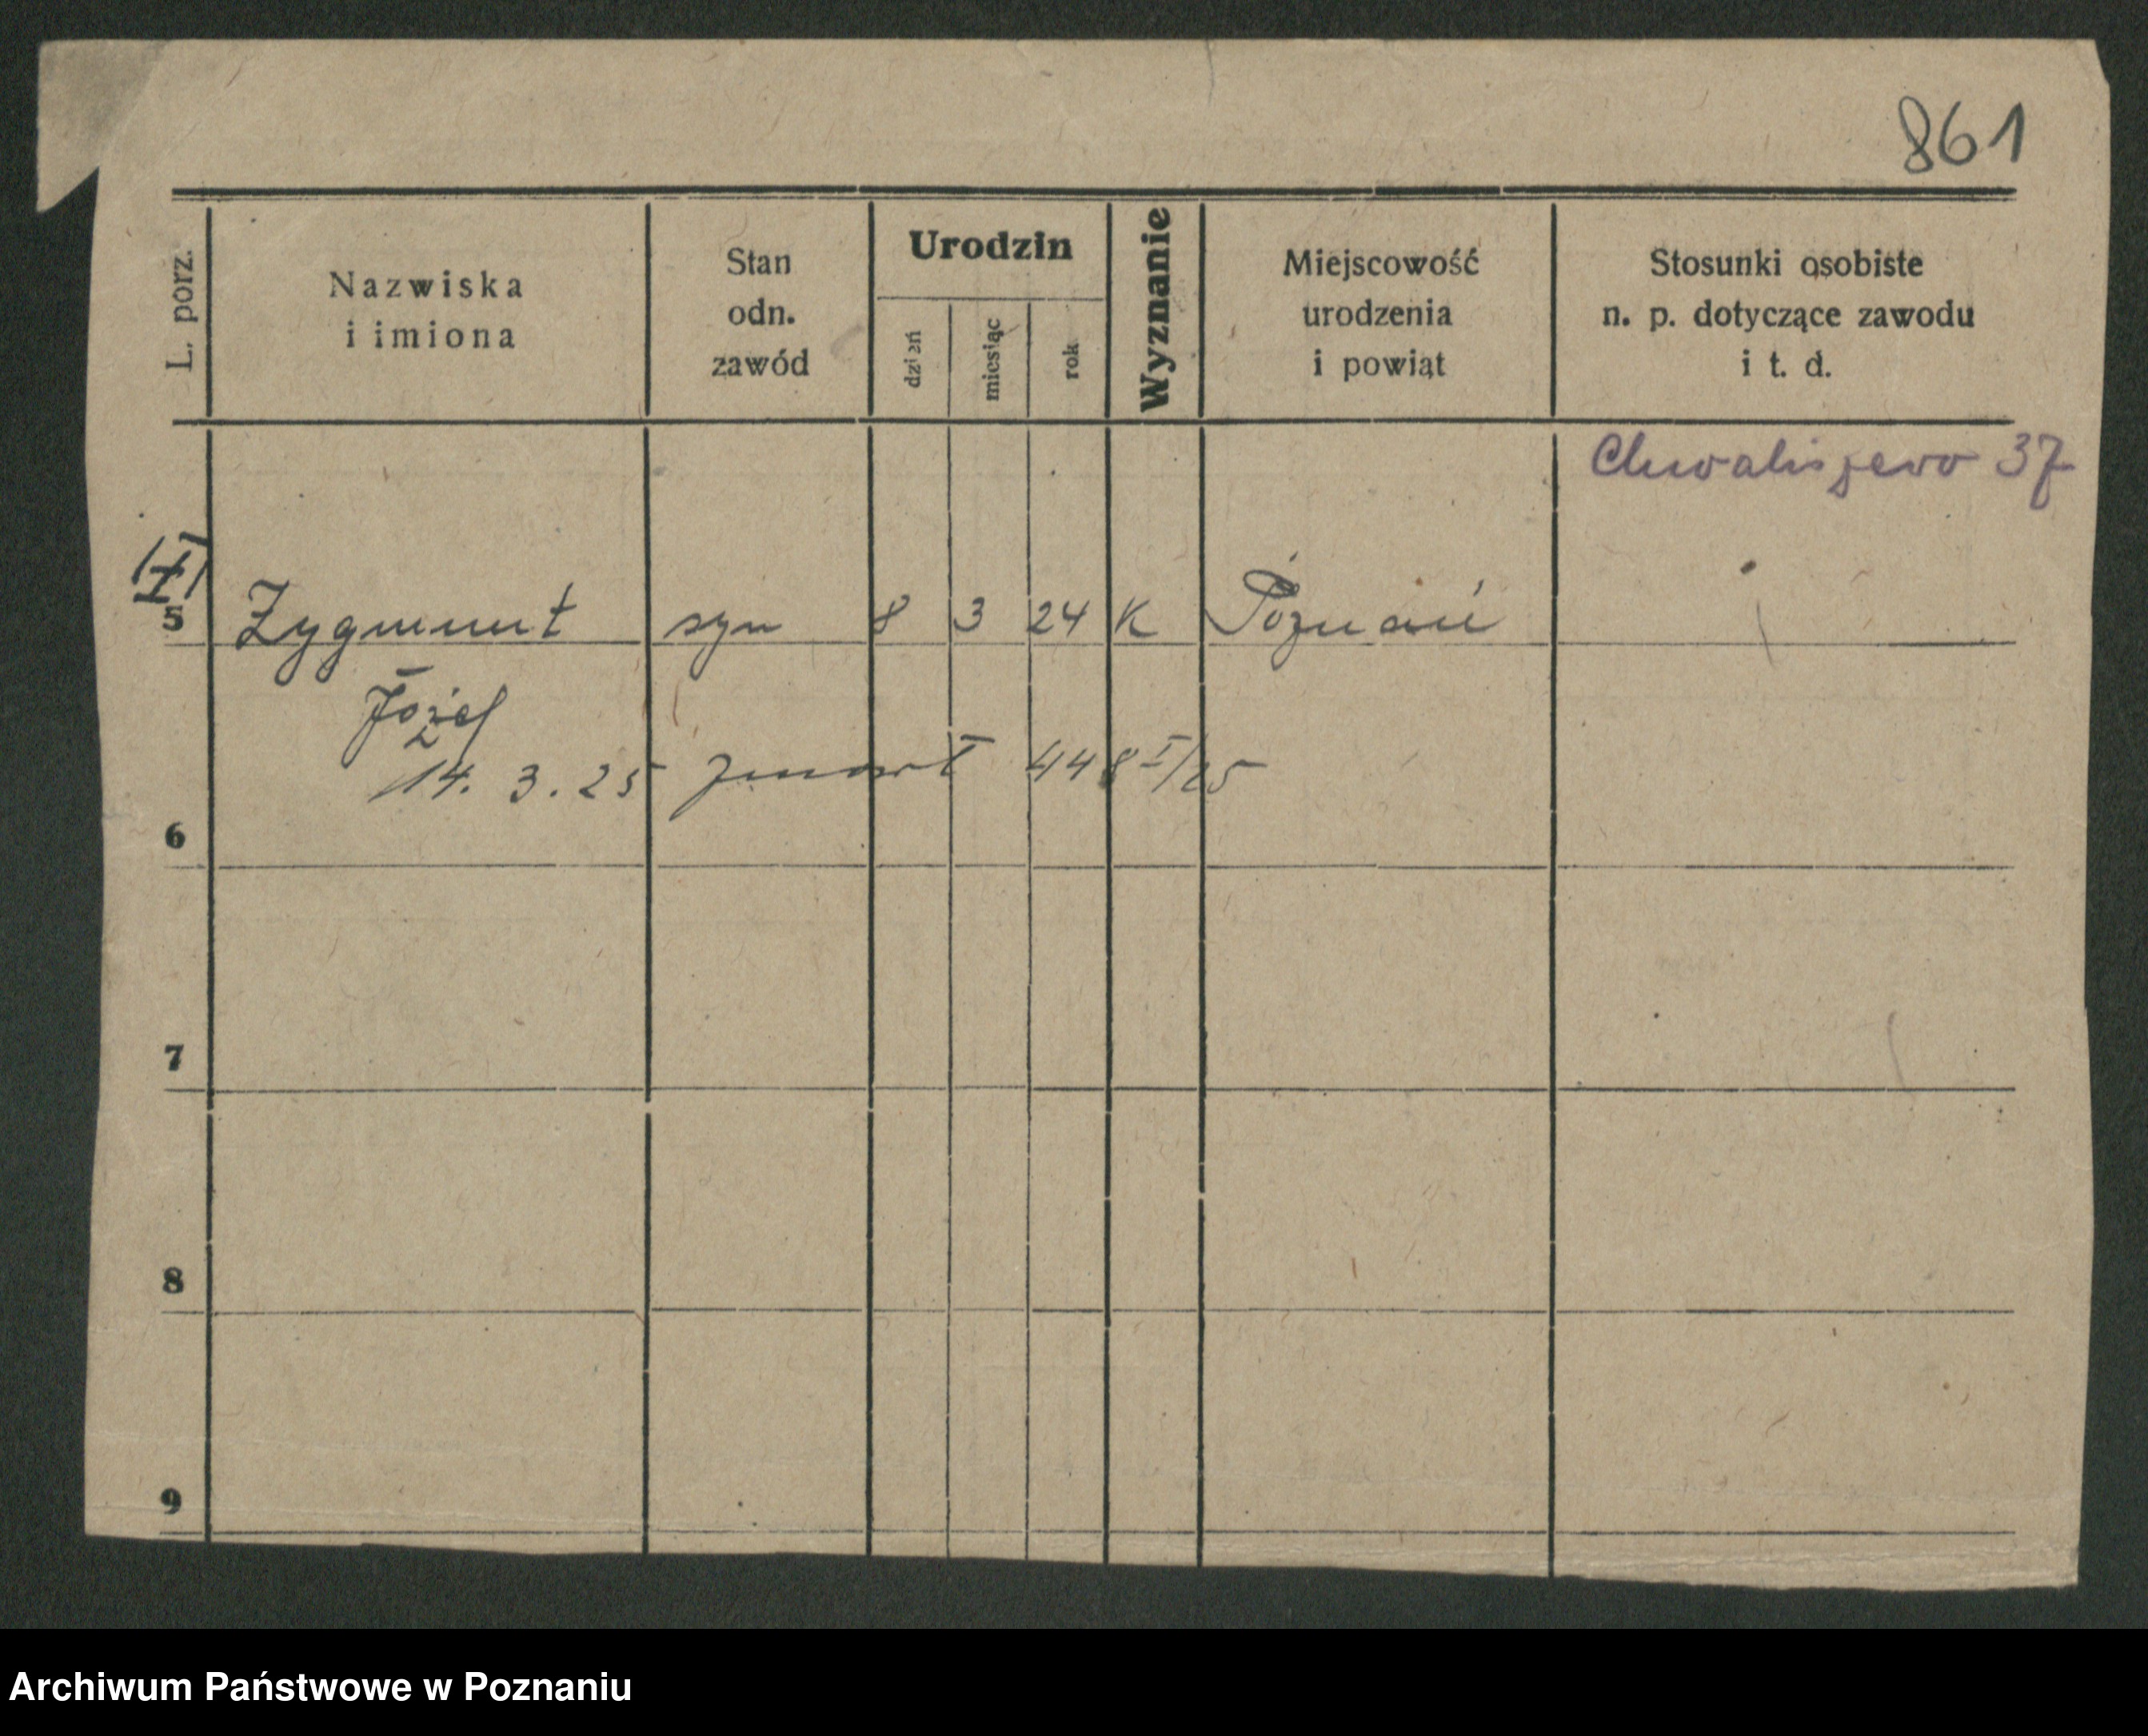 861
L. porz.
Nazwiska
i imiona
Stan
odn.
zawód
Urodzin
dzień
miesiąc
rok
Wyznanie
Miejscowość
urodzenia
i powiat
Stosunki osobiste
n. p. dotyczące zawodu
i t. d.
Chwaliszewo 37
5 Zygmunt syn 8 3 24 K Poznań
Józef
14. 3. 25 zmarł 448 I/25
6
7
8
9
Archiwum Państwowe w Poznaniu